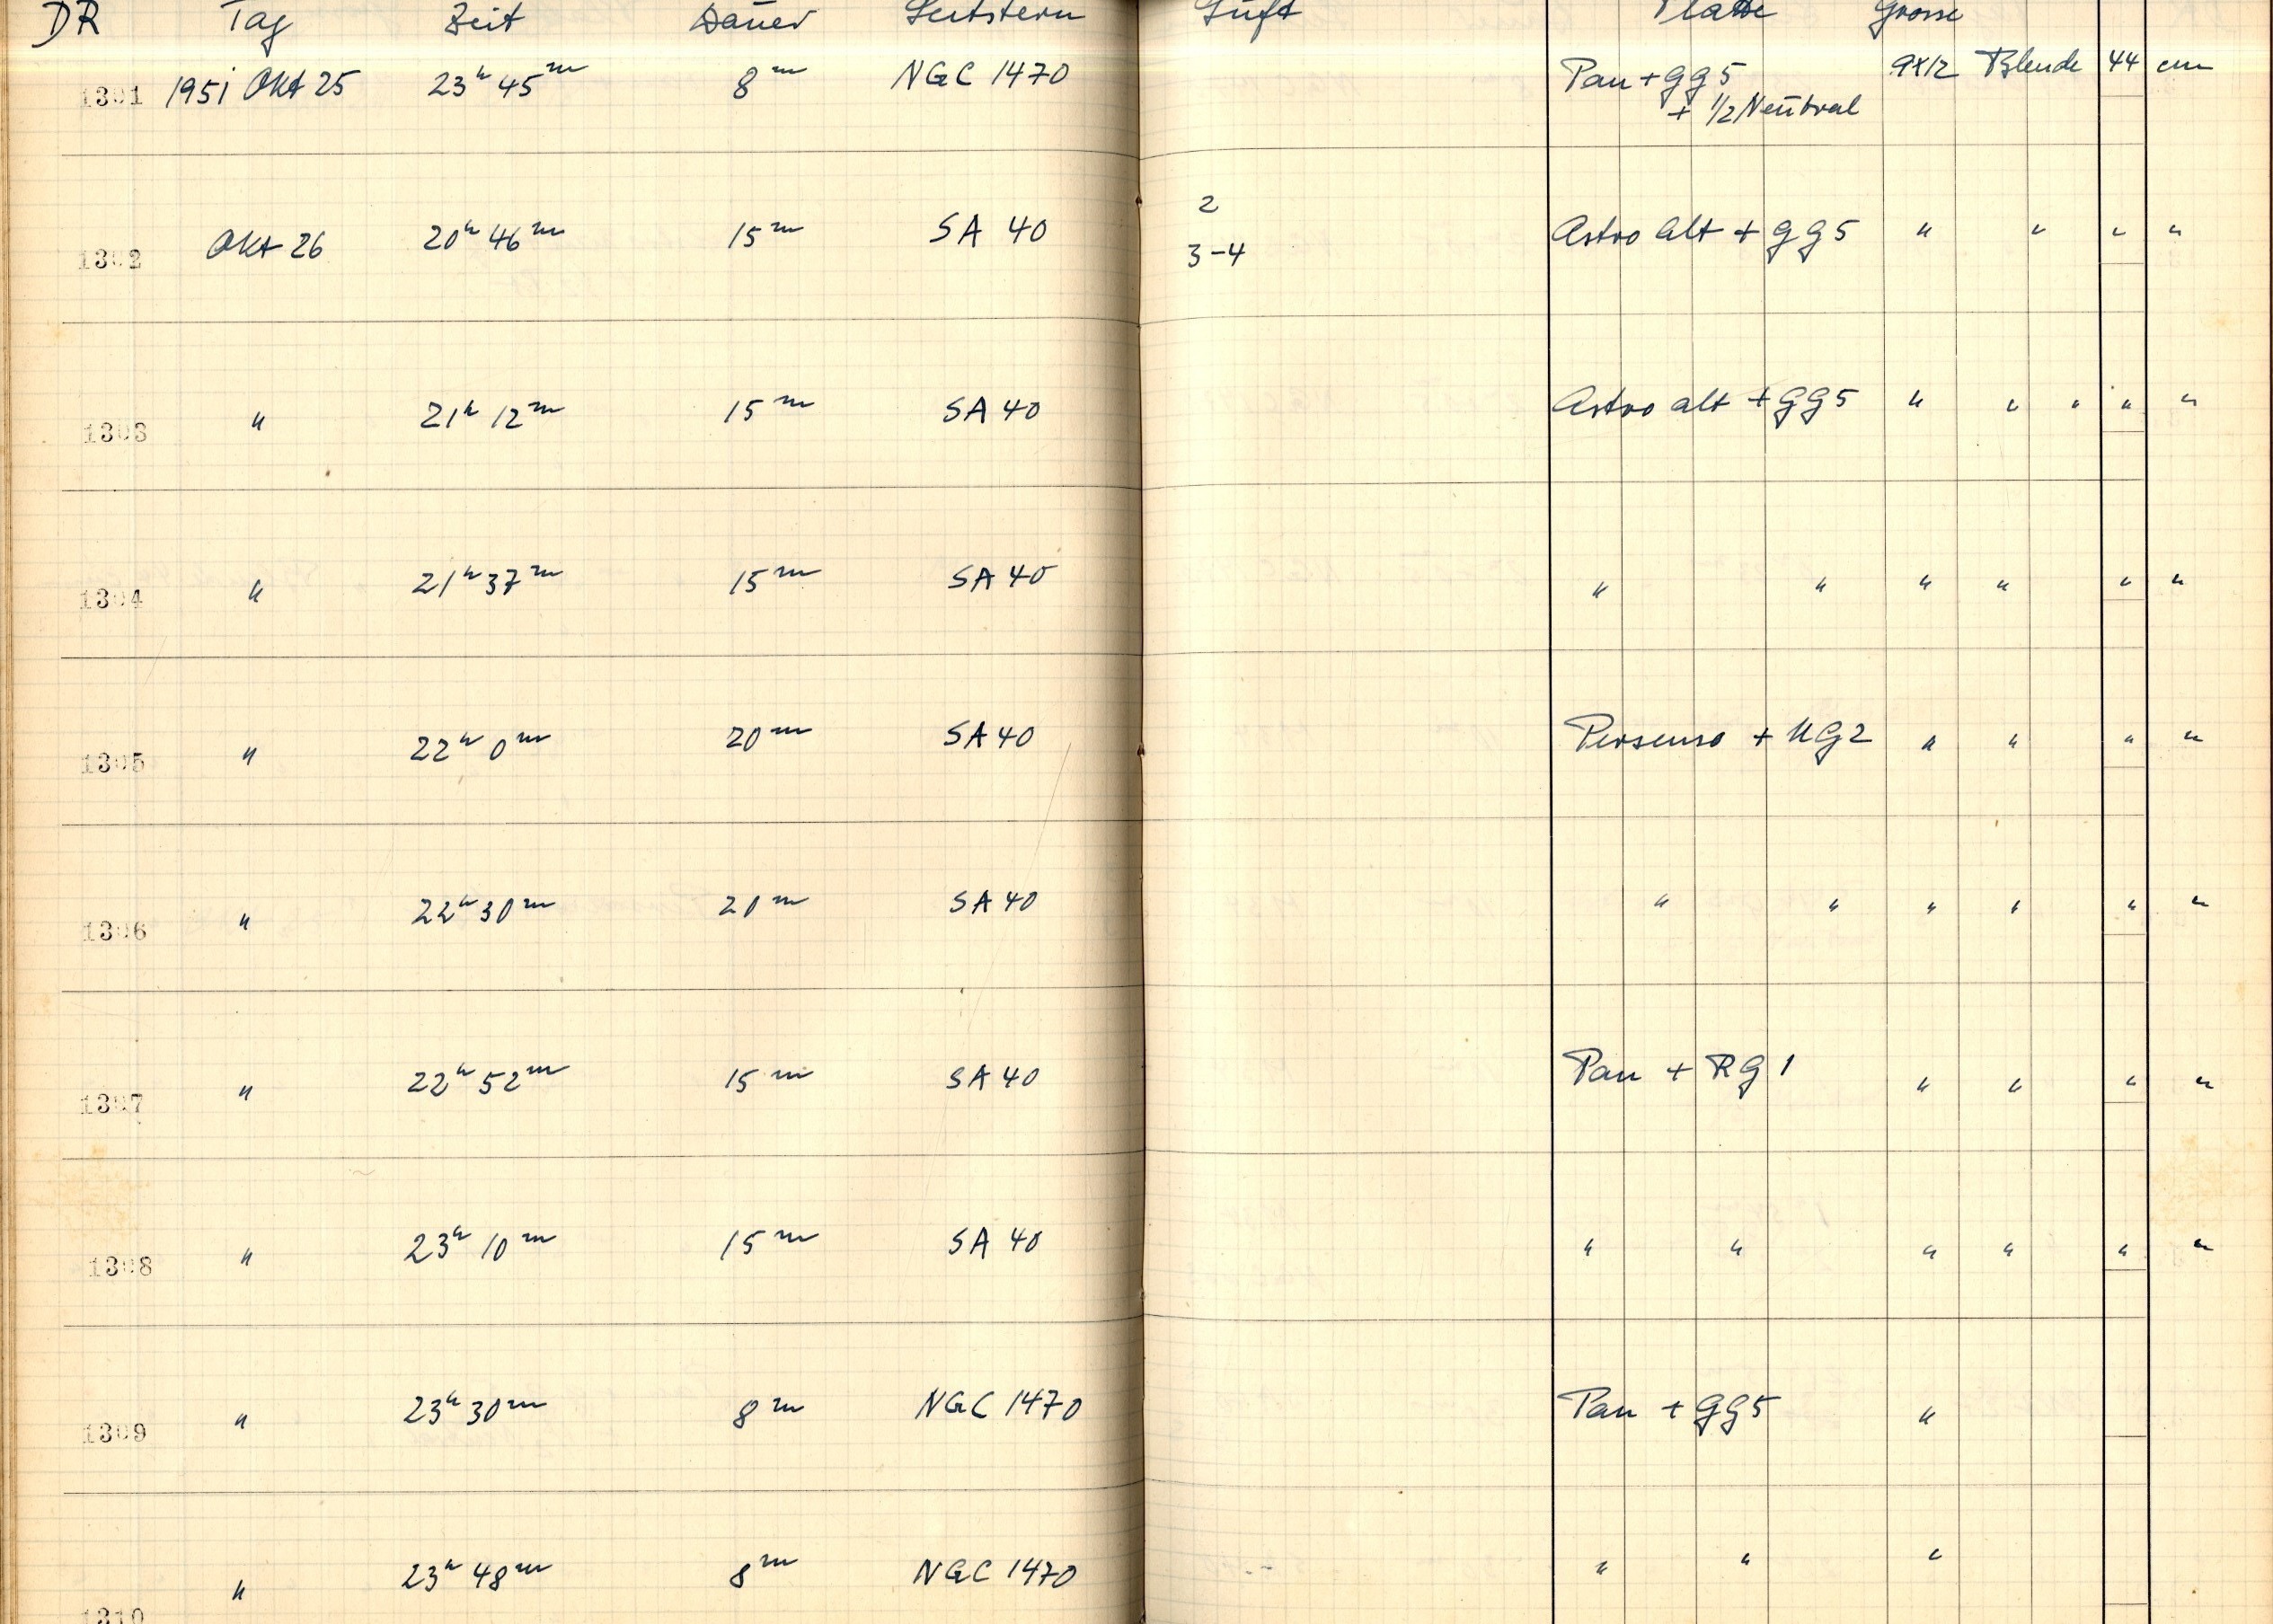 DR Tag Zeit Dauer Leitstern Luft Platte Grösse
1301 1951 Okt 25 23h 45m 8m NGC 1470 Pan + GG5 9x12 Blende 44 cm
+ 1/2 Neutral
2
1302 Okt 26 20h 46m 15m SA 40 3-4 Astro alt + GG5 " " " "
1303 " 21h 12m 15m SA 40 Astro alt + GG5 " " " " "
1304 " 21h 37m 15m SA 40 " " " " " "
1305 " 22h 0m 20m SA 40 Persenso + UG2 " " " "
1306 " 22h 30m 20m SA 40 " " " " " "
1307 " 22h 52m 15m SA 40 Pan + RG 1 " " " "
1308 " 23h 10m 15m SA 40 " " " " " "
1309 " 23h 30m 8m NGC 1470 Pan + GG5 "
1310 " 23h 48m 8m NGC 1470 " " "